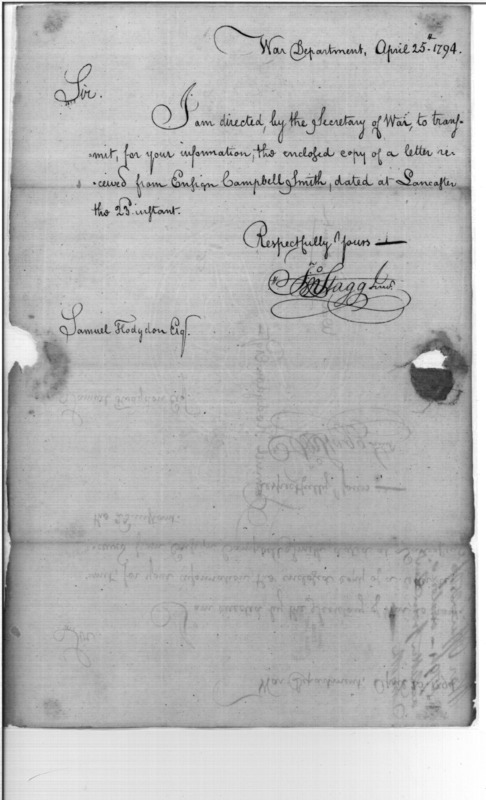 War Department, April 25th. 1794.
Sir.
I am directed, by the Secretary of War, to trans-
-mit, for your information, the enclosed copy of a letter re-
-ceived from Ensign Campbell Smith, dated at Lancaster
the 23d instant.
Respectfully Yours
Jno Stagg Junr
Samuel Hodgdon Esqr.